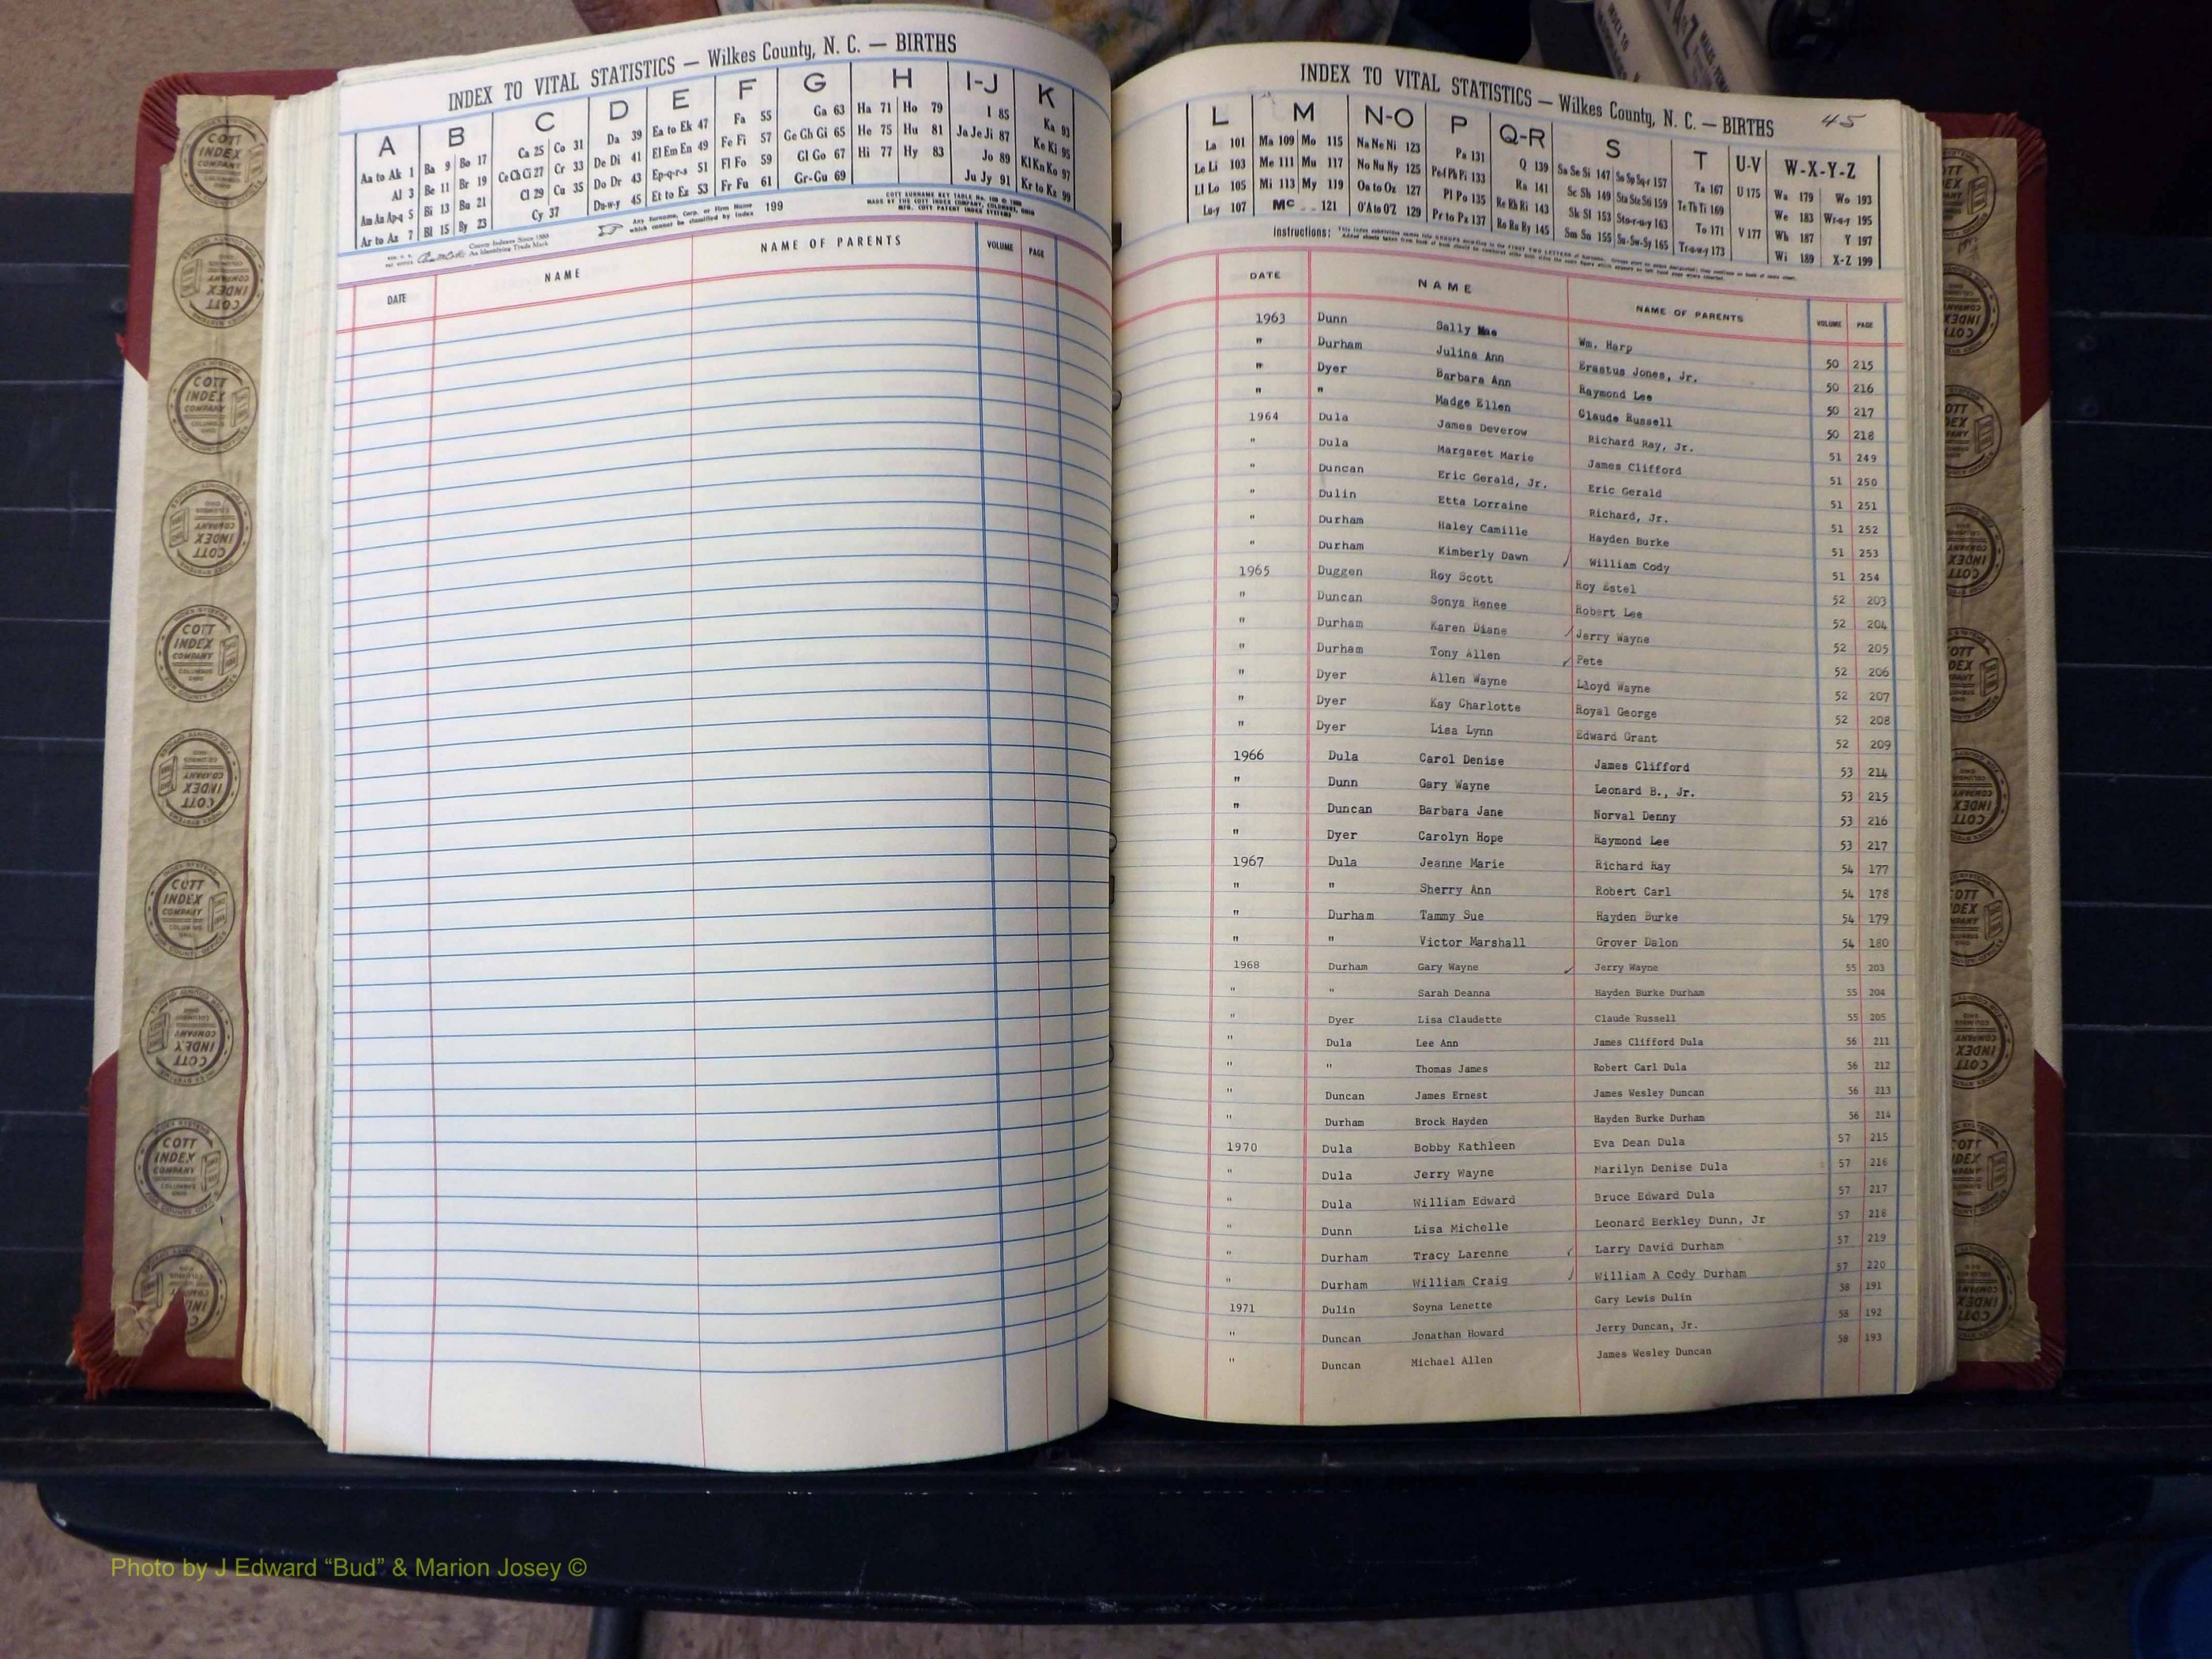 INDEX TO VITAL STATISTICS — Wilkes County, N. C. — BIRTHS
A B C D E F G H I-J K
Aa to Ak 1 Ba 9 Bo 17 Ca 25 Co 31 Da 39 Ea to Ek 47 Fa 55 Ga 63 Ha 71 Ho 79 I 85 Ka 93
Al 3 Be 11 Br 19 Ce Ch Ci 27 Cr 33 De Di 41 El Em En 49 Fe Fi 57 Ge Gh Gi 65 He 75 Hu 81 Ja Je Ji 87 Ke Ki 95
Am An Ap-q 5 Bi 13 Bu 21 Cl 29 Cu 35 Do Dr 43 Ep-q-r-s 51 Fl Fo 59 Gl Go 67 Hi 77 Hy 83 Jo 89 Kl Kn Ko 97
Ar to Az 7 Bl 15 By 23 Cy 37 Du-w-y 45 Et to Ez 53 Fr Fu 61 Gr-Gu 69 Ju Jy 91 Kr to Kz 99
Any Surname, Corp. or Firm Name which cannot be classified by index 199
County Indexes Since 1888
An Identifying Trade Mark
DATE NAME NAME OF PARENTS VOLUME PAGE
INDEX TO VITAL STATISTICS — Wilkes County, N. C. — BIRTHS 45
L M N-O P Q-R S T U-V W-X-Y-Z
La 101 Ma 109 Mo 115 Na Ne Ni 123 Pa 131 Q 139 Sa Se Si 147 So Sp Sq-r 157 Ta 167 U 175 Wa 179 Wo 193
Le Li 103 Me 111 Mu 117 No Nu Ny 125 Pe-f Ph Pi 133 Ra 141 Sc Sh 149 Sta Ste Sti 159 Te Th Ti 169 We 183 Wr-u-y 195
Ll Lo 105 Mi 113 My 119 Oa to Oz 127 Pl Po 135 Re Rh Ri 143 Sk Sl 153 Sto-r-u-y 163 To 171 V 177 Wh 187 Y 197
Lu-y 107 Mc 121 O'A to O'Z 129 Pr to Pz 137 Ro Ru Ry 145 Sm Sn 155 Su-Sw-Sy 165 Tr-u-w-y 173 Wi 189 X-Z 199
Instructions:
DATE NAME NAME OF PARENTS VOLUME PAGE
1963 Dunn Sally Mae Wm. Harp 50 215
" Durham Julina Ann Erastus Jones, Jr. 50 216
" Dyer Barbara Ann Raymond Lee 50 217
" " Madge Ellen Claude Russell 50 218
1964 Dula James Deverow Richard Ray, Jr. 51 249
" Dula Margaret Marie James Clifford 51 250
" Duncan Eric Gerald, Jr. Eric Gerald 51 251
" Dulin Etta Lorraine Richard, Jr. 51 252
" Durham Haley Camille Hayden Burke 51 253
" Durham Kimberly Dawn William Cody 51 254
1965 Duggen Roy Scott Roy Estel 52 203
" Duncan Sonya Renee Robert Lee 52 204
" Durham Karen Diane Jerry Wayne 52 205
" Durham Tony Allen Pete 52 206
" Dyer Allen Wayne Lloyd Wayne 52 207
" Dyer Kay Charlotte Royal George 52 208
" Dyer Lisa Lynn Edward Grant 52 209
1966 Dula Carol Denise James Clifford 53 214
" Dunn Gary Wayne Leonard B., Jr. 53 215
" Duncan Barbara Jane Norval Denny 53 216
" Dyer Carolyn Hope Raymond Lee 53 217
1967 Dula Jeanne Marie Richard Ray 54 177
" " Sherry Ann Robert Carl 54 178
" Durham Tammy Sue Hayden Burke 54 179
" " Victor Marshall Grover Dalon 54 180
1968 Durham Gary Wayne Jerry Wayne 55 203
" " Sarah Deanna Hayden Burke Durham 55 204
" Dyer Lisa Claudette Claude Russell 55 205
" Dula Lee Ann James Clifford Dula 56 211
" " Thomas James Robert Carl Dula 56 212
" Duncan James Ernest James Wesley Duncan 56 213
" Durham Brock Hayden Hayden Burke Durham 56 214
1970 Dula Bobby Kathleen Eva Dean Dula 57 215
" Dula Jerry Wayne Marilyn Denise Dula 57 216
" Dula William Edward Bruce Edward Dula 57 217
" Dunn Lisa Michelle Leonard Berkley Dunn, Jr 57 218
" Durham Tracy Larenne Larry David Durham 57 219
" Durham William Craig William A Cody Durham 57 220
1971 Dulin Soyna Lenette Gary Lewis Dulin 58 191
" Duncan Jonathan Howard Jerry Duncan, Jr. 58 192
" Duncan Michael Allen James Wesley Duncan 58 193
COTT INDEX COMPANY
Photo by J Edward “Bud” & Marion Josey ©